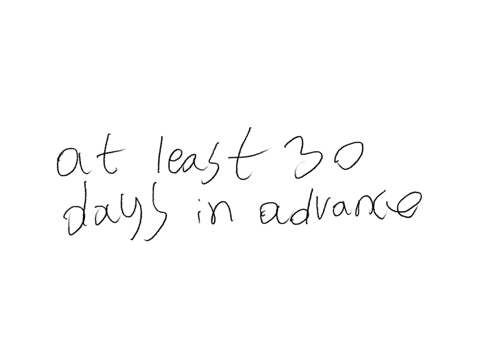 at least 30
days in advance